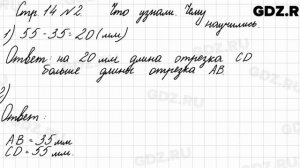 Стр. 14 № 2. Что узнали. Чему научились.
GDZ.RU
1) 55 - 35 = 20 (мм)
Ответ: на 20 мм длина отрезка CD
больше длины отрезка AB
2)
Ответ:
AB = 35 мм
CD = 55 мм.
GDZ.RU